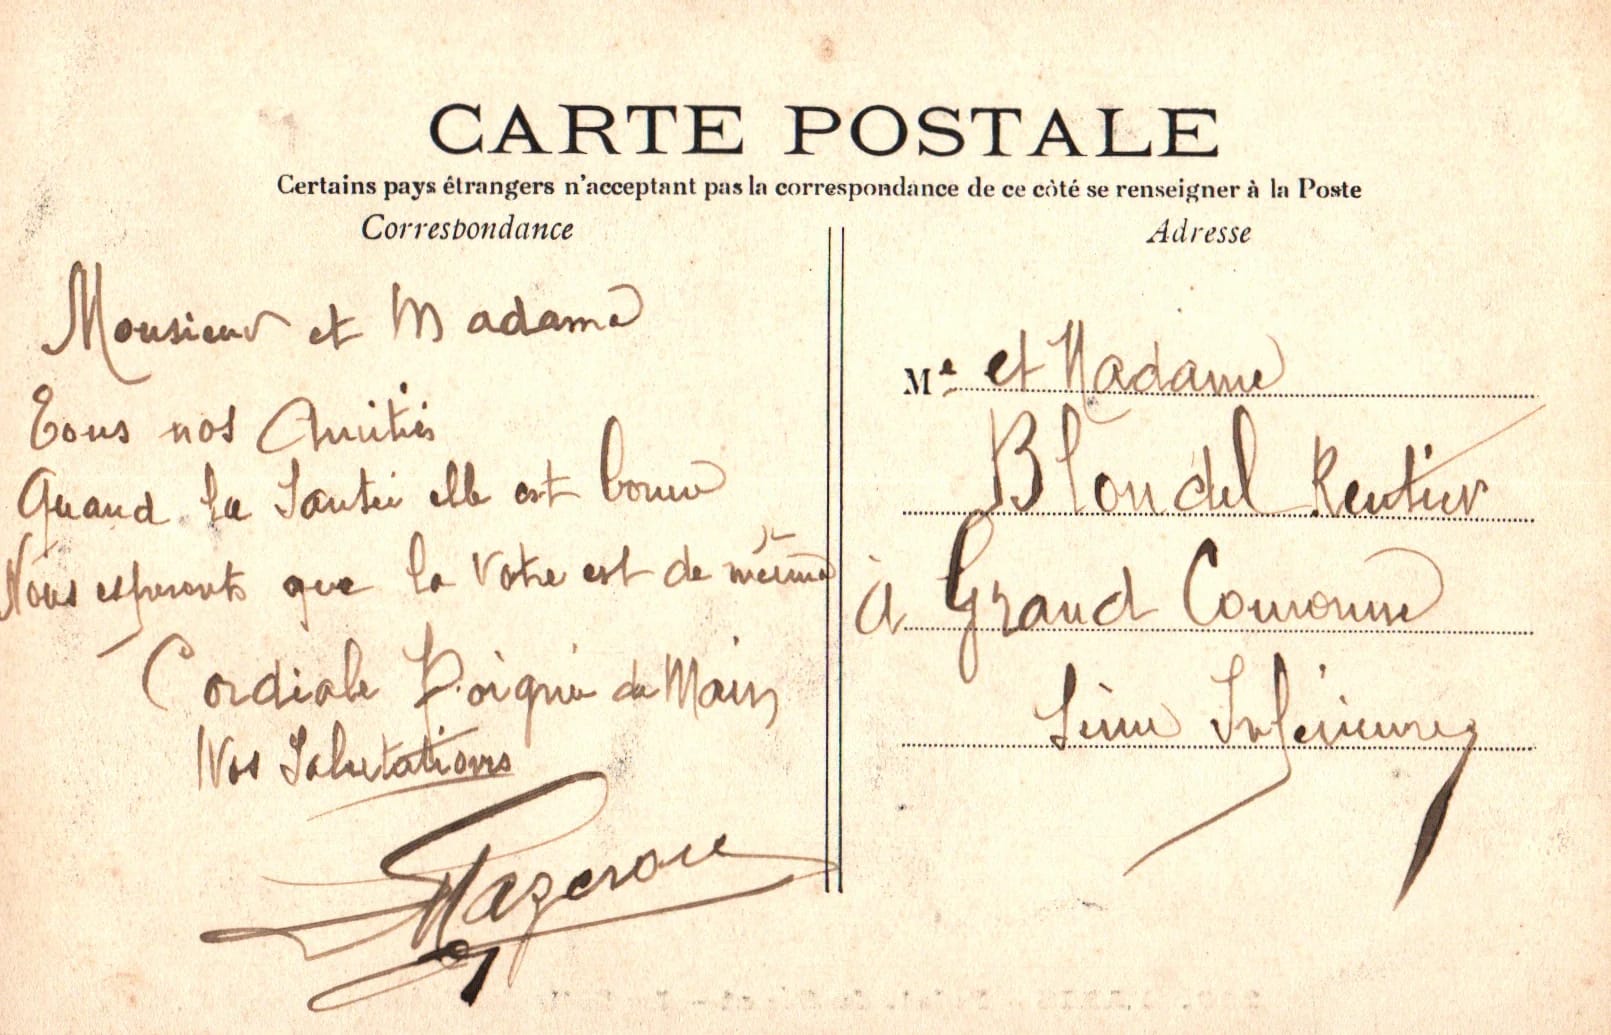 CARTE POSTALE
Certains pays étrangers n'acceptant pas la correspondance de ce côté se renseigner à la Poste
Correspondance
Monsieur et Madame
Tous nos Amitiés
Quand la Santé elle est bonne
Nous esperonts que la Votre est de même
Cordiale Poigné de Main
Nos Salutations
Mazeroie
Adresse
Mr et Madame
Blondel Rentier
à Grand Couronne
Seine Inférieure